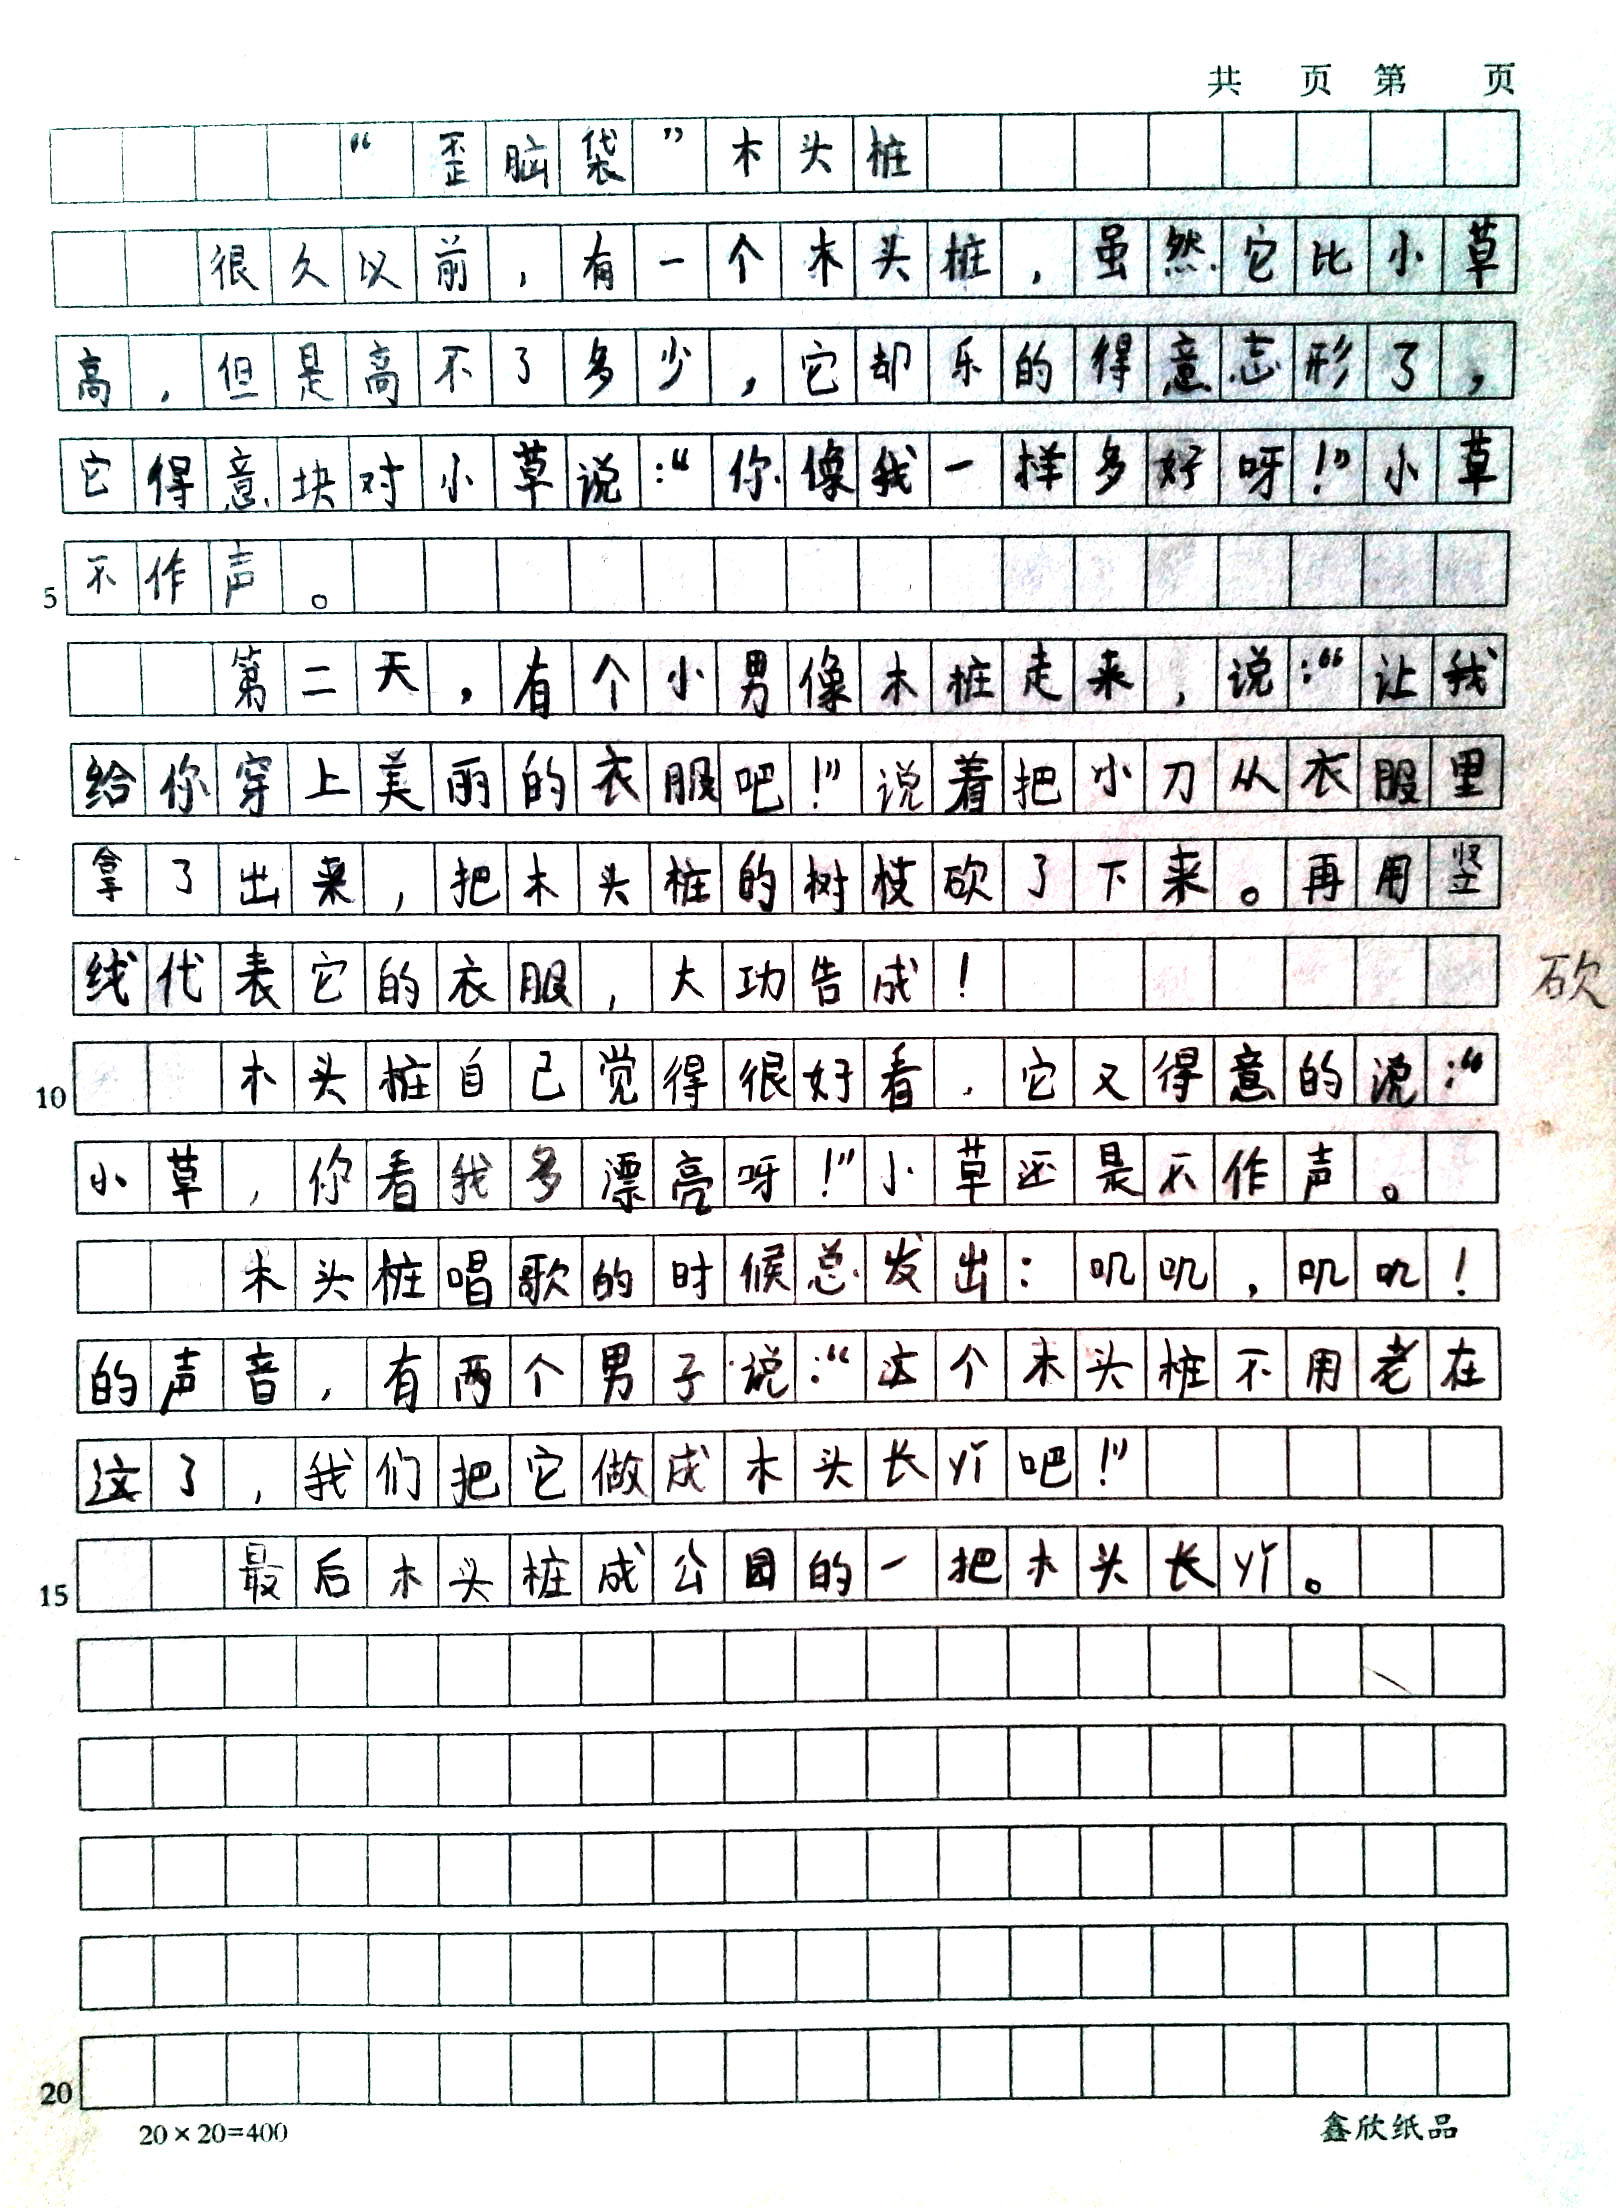 共 页 第 页
“歪脑袋”木头桩
很久以前，有一个木头桩，虽然它比小草
高，但是高不了多少，它却乐的得意忘形了，
它得意块对小草说：“你像我一样多好呀！”小草
5 不作声。
第二天，有个小男像木桩走来，说：“让我
给你穿上美丽的衣服吧！”说着把小刀从衣服里
拿了出来，把木头桩的树枝砍了下来。再用竖
线代表它的衣服，大功告成！
砍
10 木头桩自己觉得很好看，它又得意的说：“
小草，你看我多漂亮呀！”小草还是不作声。
木头桩唱歌的时候总发出：叽叽，叽叽！
的声音，有两个男子说：“这个木头桩不用老在
这了，我们把它做成木头长丫吧！”
15 最后木头桩成公园的一把木头长丫。
20
20×20=400 鑫欣纸品